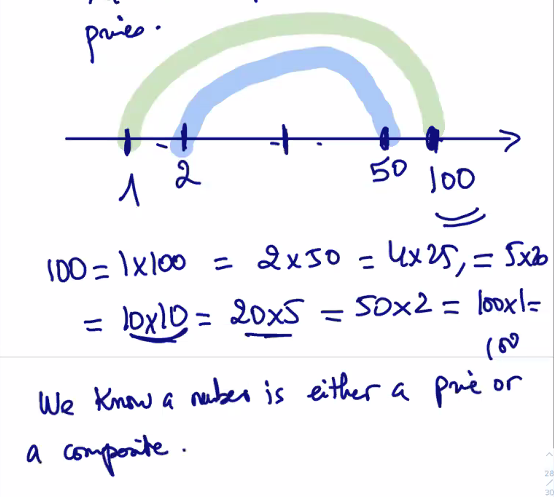 pries.
1 2 50 100
100 = 1x100 = 2x50 = 4x25, = 5x20
= 10x10 = 20x5 = 50x2 = 100x1 =
100
We know a nuber is either a prie or
a composite.
28
30